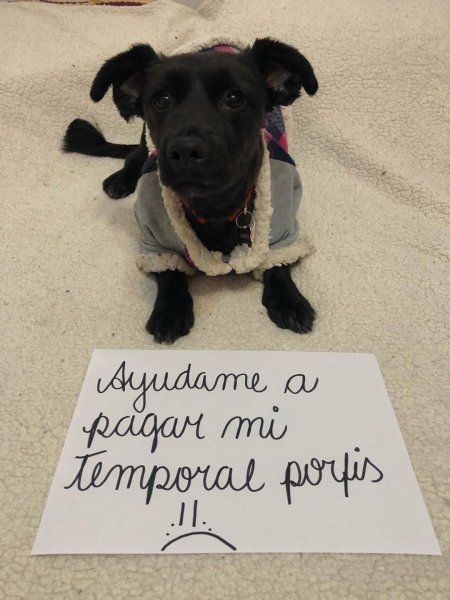 Ayudame a
pagar mi
temporal porfis